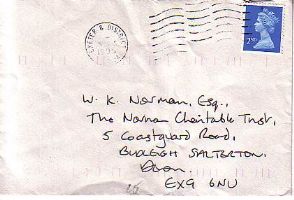 EXETER & DISTRICT
2ND
W. K. Norman, Esq.,
The Norman Charitable Trust,
5 Coastguard Road,
BUDLEIGH SALTERTON.
Devon.
EX9 6NU